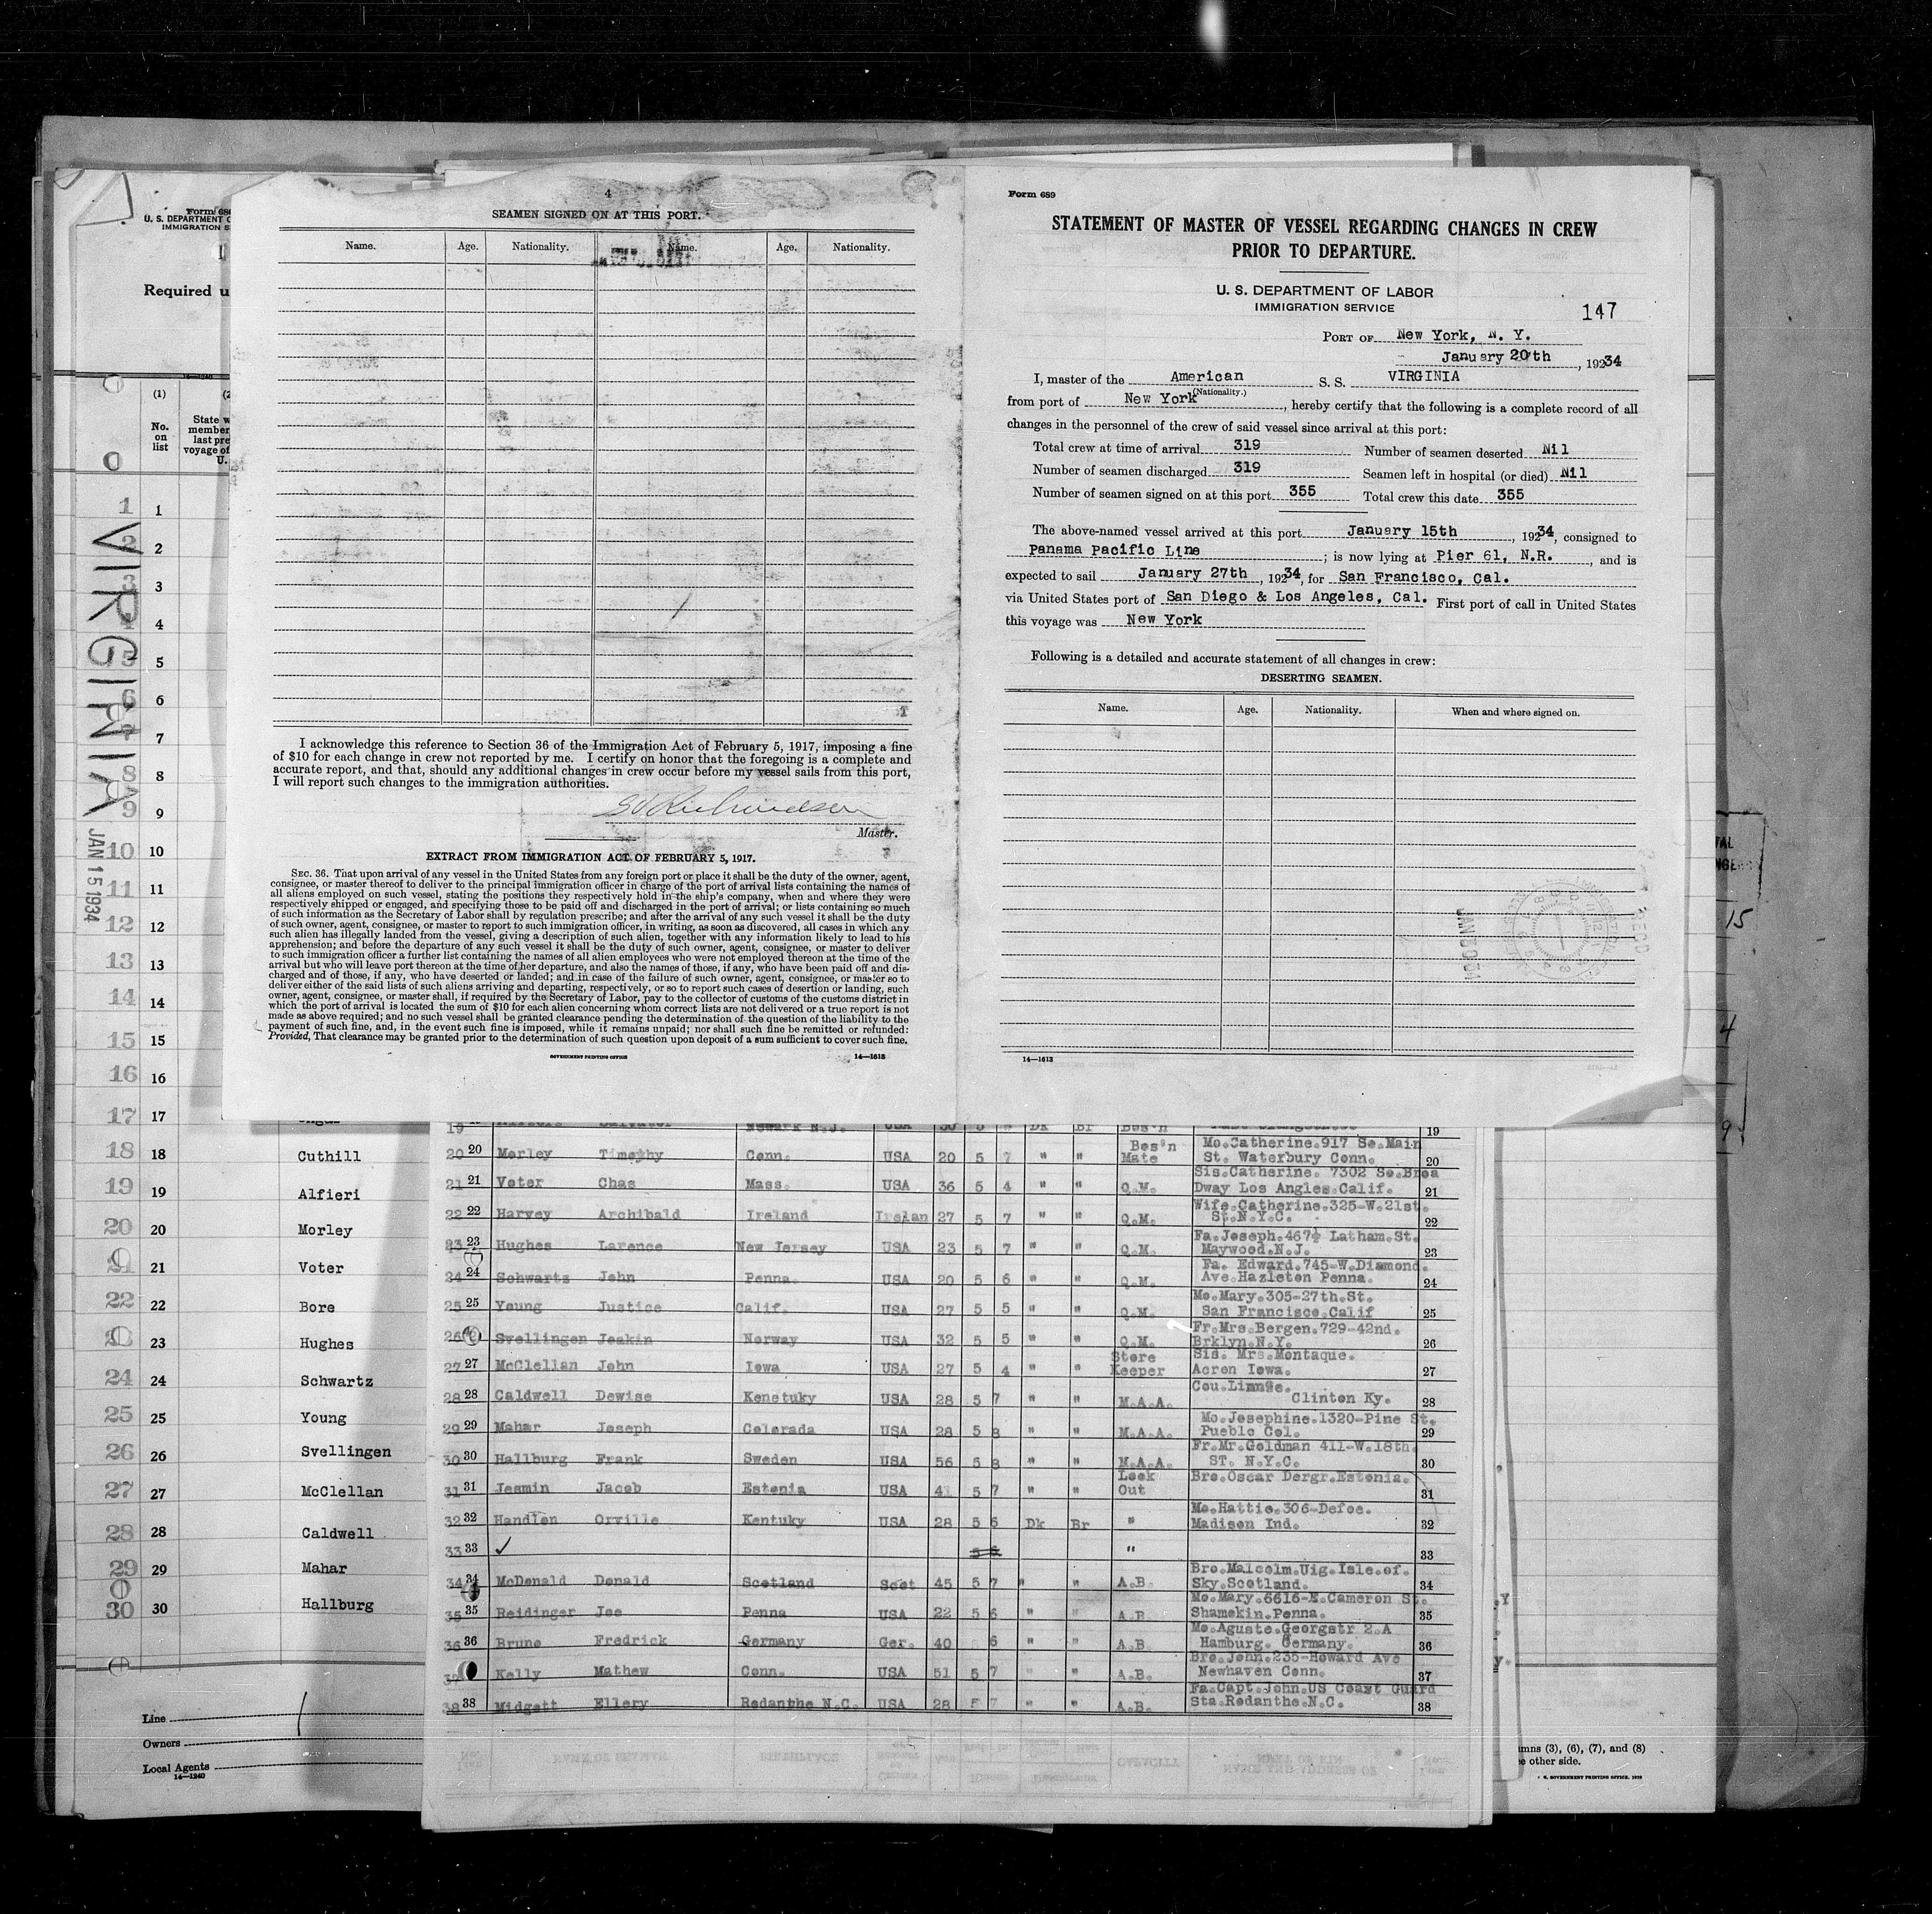 Form 686
U. S. DEPARTMENT O
IMMIGRATION S
Required u
(1)
No. on list
State w
member
last pre
voyage of
U.
VIRGINIA
JAN 15 1934
1 1
2 2
3 3
4 4
5 5
6 6
7 7
8 8
9 9
10 10
11 11
12 12
13 13
14 14
15 15
16 16
17 17
18 18 Cuthill
19 19 Alfieri
20 20 Morley
21 21 Voter
22 22 Bore
23 Hughes
24 24 Schwartz
25 25 Young
26 26 Svellingen
27 27 McClellan
28 28 Caldwell
29 29 Mahar
30 30 Hallburg
Line
Owners
Local Agents
14—1240
4
SEAMEN SIGNED ON AT THIS PORT.
Name. Age. Nationality. Name. Age. Nationality.
I acknowledge this reference to Section 36 of the Immigration Act of February 5, 1917, imposing a fine
of $10 for each change in crew not reported by me. I certify on honor that the foregoing is a complete and
accurate report, and that, should any additional changes in crew occur before my vessel sails from this port,
I will report such changes to the immigration authorities.
Richardson
Master.
EXTRACT FROM IMMIGRATION ACT OF FEBRUARY 5, 1917.
SEC. 36. That upon arrival of any vessel in the United States from any foreign port or place it shall be the duty of the owner, agent,
consignee, or master thereof to deliver to the principal immigration officer in charge of the port of arrival lists containing the names of
all aliens employed on such vessel, stating the positions they respectively hold in the ship's company, when and where they were
respectively shipped or engaged, and specifying those to be paid off and discharged in the port of arrival; or lists containing so much
of such information as the Secretary of Labor shall by regulation prescribe; and after the arrival of any such vessel it shall be the duty
of such owner, agent, consignee, or master to report to such immigration officer, in writing, as soon as discovered, all cases in which any
such alien has illegally landed from the vessel, giving a description of such alien, together with any information likely to lead to his
apprehension; and before the departure of any such vessel it shall be the duty of such owner, agent, consignee, or master to deliver
to such immigration officer a further list containing the names of all alien employees who were not employed thereon at the time of the
arrival but who will leave port thereon at the time of her departure, and also the names of those, if any, who have been paid off and dis-
charged and of those, if any, who have deserted or landed; and in case of the failure of such owner, agent, consignee, or master so to
deliver either of the said lists of such aliens arriving and departing, respectively, or so to report such cases of desertion or landing, such
owner, agent, consignee, or master shall, if required by the Secretary of Labor, pay to the collector of customs of the customs district in
which the port of arrival is located the sum of $10 for each alien concerning whom correct lists are not delivered or a true report is not
made as above required; and no such vessel shall be granted clearance pending the determination of the question of the liability to the
payment of such fine, and, in the event such fine is imposed, while it remains unpaid; nor shall such fine be remitted or refunded:
Provided, That clearance may be granted prior to the determination of such question upon deposit of a sum sufficient to cover such fine.
GOVERNMENT PRINTING OFFICE 14—1613
Form 689
STATEMENT OF MASTER OF VESSEL REGARDING CHANGES IN CREW
PRIOR TO DEPARTURE.
U. S. DEPARTMENT OF LABOR
IMMIGRATION SERVICE
147
PORT OF New York, N. Y.
January 20th, 1934
I, master of the American S. S. VIRGINIA
(Nationality.)
from port of New York, hereby certify that the following is a complete record of all
changes in the personnel of the crew of said vessel since arrival at this port:
Total crew at time of arrival 319 Number of seamen deserted Nil
Number of seamen discharged 319 Seamen left in hospital (or died) Nil
Number of seamen signed on at this port 355 Total crew this date 355
The above-named vessel arrived at this port January 15th, 19234, consigned to
Panama Pacific Line; is now lying at Pier 61, N.R., and is
expected to sail January 27th, 19234, for San Francisco, Cal.
via United States port of San Diego & Los Angeles, Cal. First port of call in United States
this voyage was New York
Following is a detailed and accurate statement of all changes in crew:
DESERTING SEAMEN.
Name. Age. Nationality. When and where signed on.
14—1613
19 Newark N.J. USA 30 5 Dk Br Bos'n 19
20 20 Morley Timothy Conn. USA 20 5 7 " " Bos'n Mate Mo.Catherine.917 So.Main St. Waterbury Conn. 20
21 21 Voter Chas Mass. USA 36 5 4 " " Q.M. Sis.Catherine. 7302 So.Broa Dway Los Angles.Calif. 21
22 22 Harvey Archibald Ireland Irelan 27 5 7 " " Q.M. Wife.Catherine.325-W.21st. St.N.Y.C. 22
23 23 Hughes Larence New Jersey USA 23 5 7 " " Q.M. Fa.Joseph.467½ Latham.St. Maywood.N.J. 23
24 24 Schwartz John Penna. USA 20 5 6 " " Q.M. Fa. Edward.745-W.Diamond. Ave.Hazleton Penna. 24
25 25 Young Justice Calif. USA 27 5 5 " " Q.M. Mo.Mary.305-27th.St. San Francisco.Calif 25
26 Svellingen Joakin Norway USA 32 5 5 " " Q.M. Fr.Mrs.Bergen.729-42nd. Brklyn.N.Y. 26
27 27 McClellan John Iowa USA 27 5 4 " " Store Keeper Sis. Mrs.Montaque. Acron Iowa. 27
28 28 Caldwell Dewise Kenetuky USA 28 5 7 " " M.A.A. Cou.Linnie. Clinton Ky. 28
29 29 Mahar Joseph Colorada USA 28 5 8 " " M.A.A. Mo.Josephine.1320-Pine St. Pueblo Col. 29
30 30 Hallburg Frank Sweden USA 56 5 8 " " M.A.A. Fr.Mr.Goldman 411-W.18th. ST. N.Y.C. 30
31 31 Jesmin Jacob Estonia USA 41 5 7 " " Look Out Bro.Oscar Dergr.Estonia. 31
32 32 Handlen Orville Kentuky USA 28 5 6 Dk Br " Mo.Hattie.306-Defoe. Madison Ind. 32
33 33 ✓ 5 6 " 33
34 34 McDonald Donald Scotland Scot 45 5 7 " " A.B. Bro.Malcolm.Uig.Isle.of. Sky.Scotland. 34
35 35 Reidinger Joe Penna USA 22 5 6 " " A.B. Mo.Mary.6616-E.Cameron St. Shamokin.Penna. 35
36 36 Bruno Fredrick Germany Ger. 40 6 " " A.B. Mo.Aguste.Georgstr 2.A Hamburg. Germany. 36
37 Kelly Mathew Conn. USA 51 5 7 " " A.B. Bro.John.235-Howard Ave Newhaven Conn. 37
38 38 Midgett Ellery Rodanthe N.C. USA 28 5 7 " " A.B. Fa.Capt.John.US Coast Guard Sta.Rodanthe.N.C. 38
15
4
9
umns (3), (6), (7), and (8)
e other side.